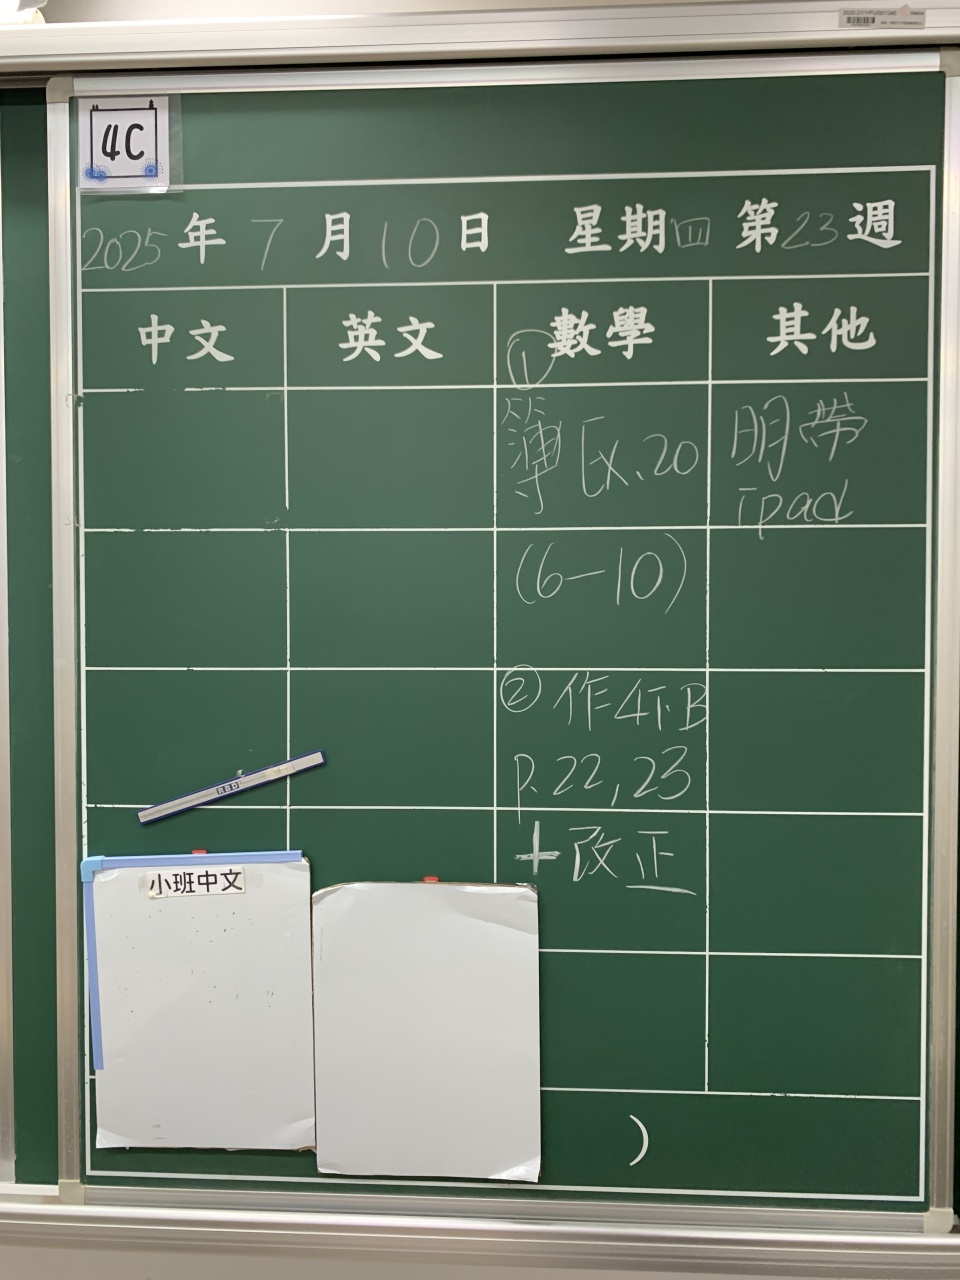 4C
2025年7月10日 星期四 第23週
中文 英文 數學 其他
① 簿 Ex.20
(6-10)
② 作4下B
p.22,23
+改正
明帶
ipad
RBD
小班中文
)